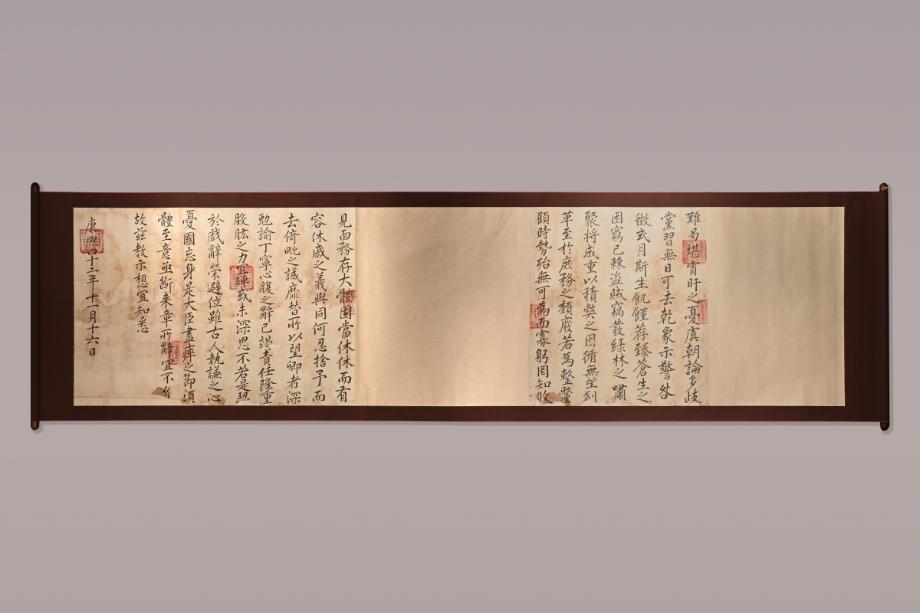 難曷堪宵旰之憂虞朝論多歧
黨習無日可去乾象示警咎
徵式月斯生飢饉荐臻蒼生之
困窮已棘盜賊竊發綠林之嘯
聚將成重以積弊之因循無望刻
革至於庶務之頹廢若為整
顧時勢殆無可為而寡躬罔知攸
見面務存大體固當休休而有
容休戚之義與同何忍捨予而
去倚毗之誠靡替所以望卿者深
勉諭丁寧心腹之辭已諰責任隆重
股肱之力宜殫或未深思不若是恝
於戲辭榮避位雖古人執謙之心
憂國忘身是大臣盡瘁之節須
體至意亟斷來章所辭宜不允
故茲教示想宜知悉
康熙四十三年十一月十六日